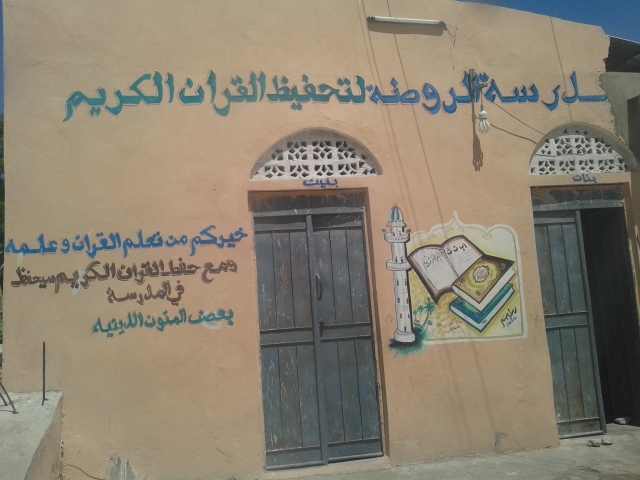 مدرسة الروضة لتحفيظ القران الكريم
بنات
بنات
خيركم من تعلم القران وعلمه
ومع حفظ القران الكريم سيحفظ
في المدرسة
بعض المتون الدينيه
ا ب ت ث